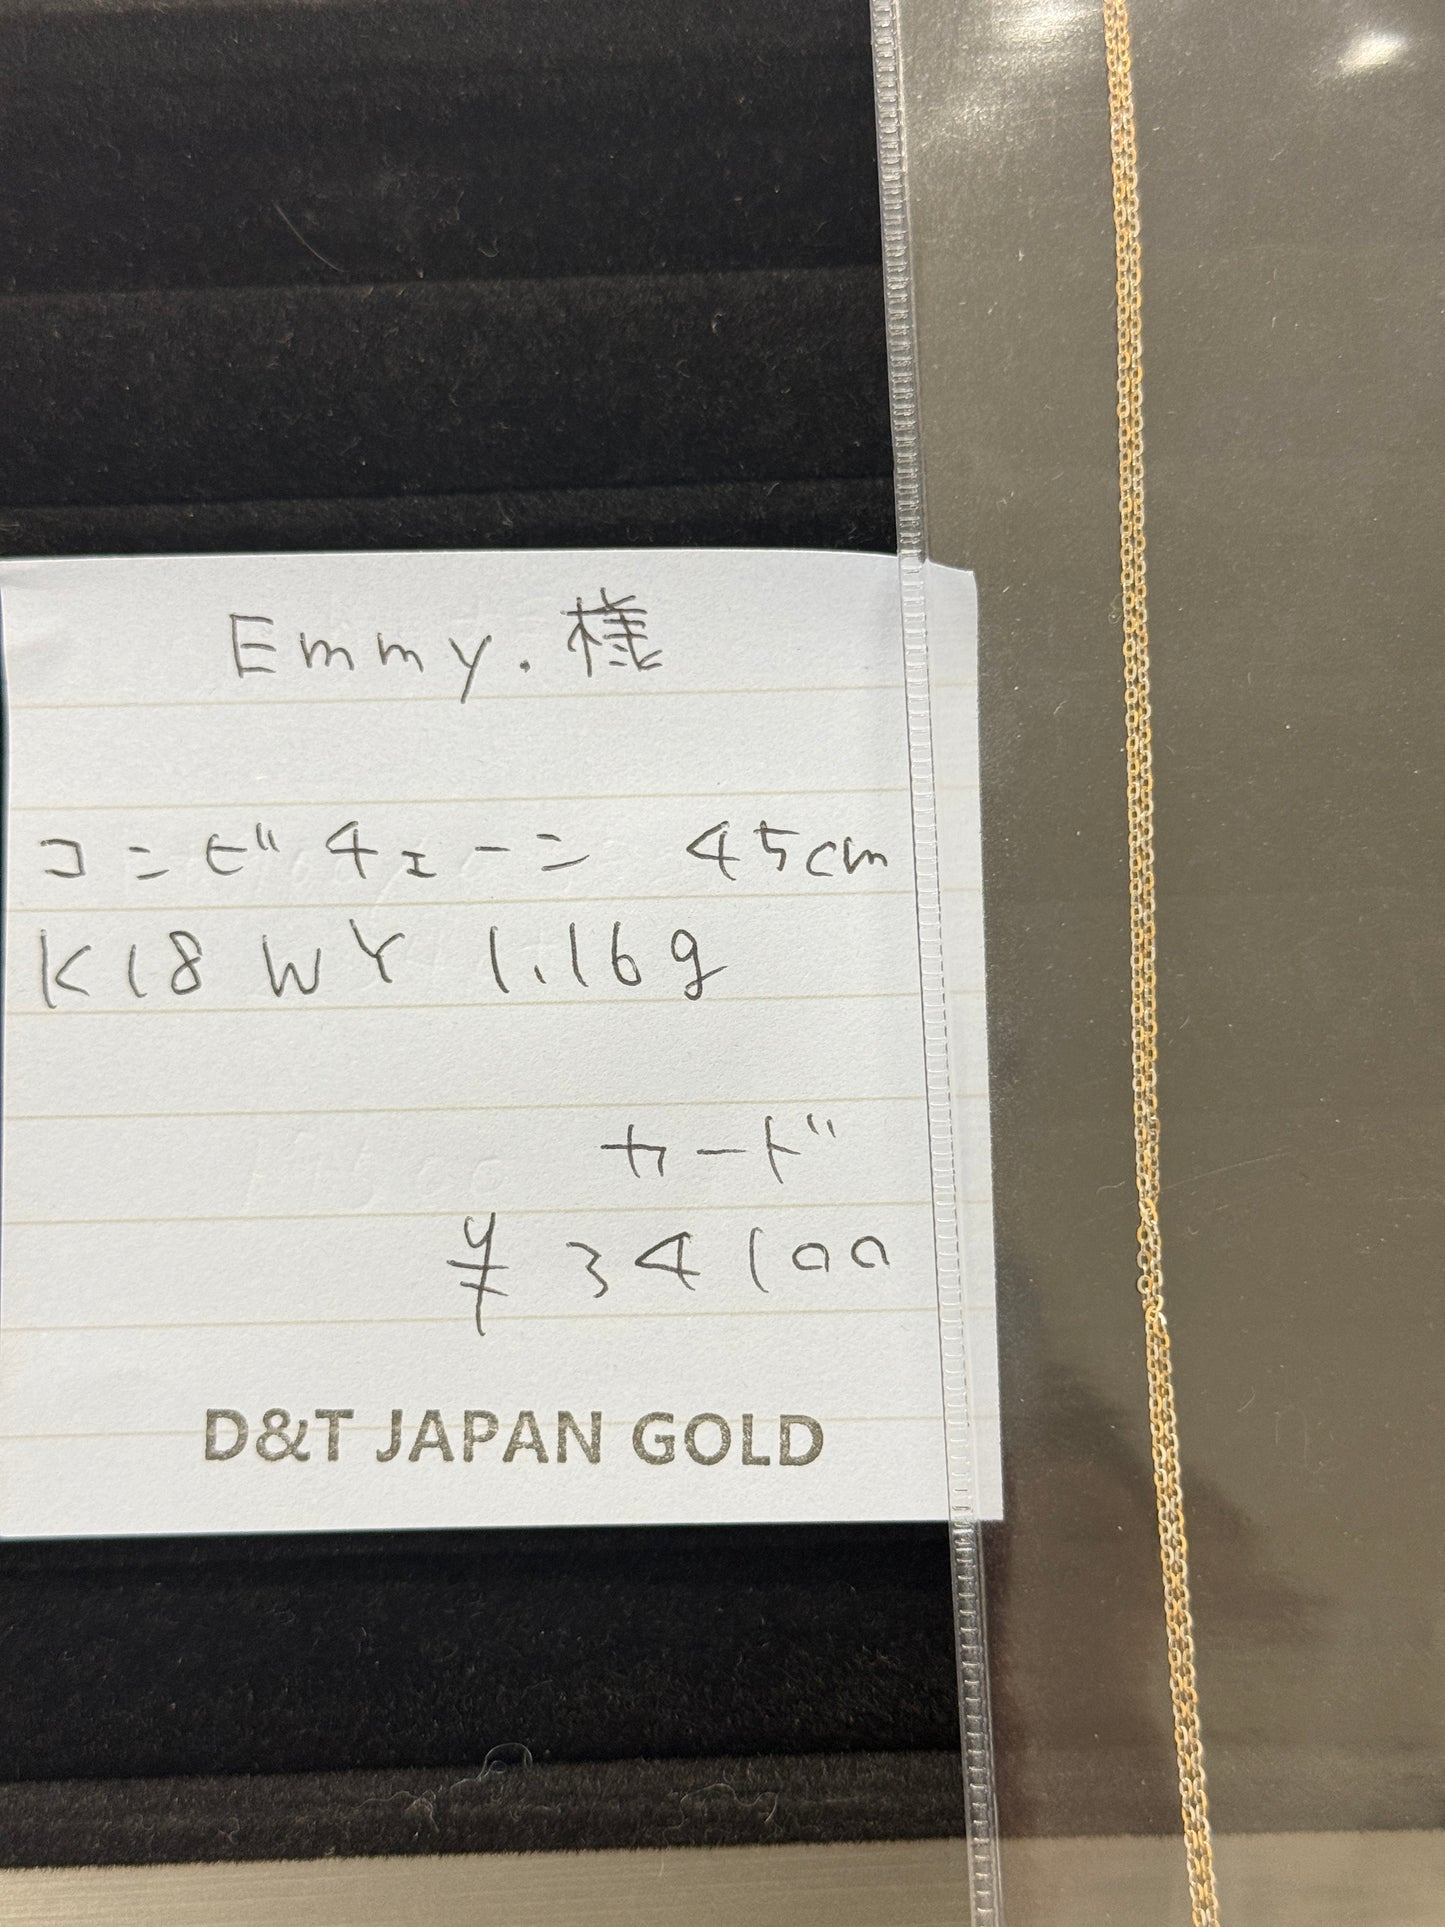 Emmy. 様
コンビチェーン 45cm
K18 WY 1.16g
カード
¥34100
D&T JAPAN GOLD